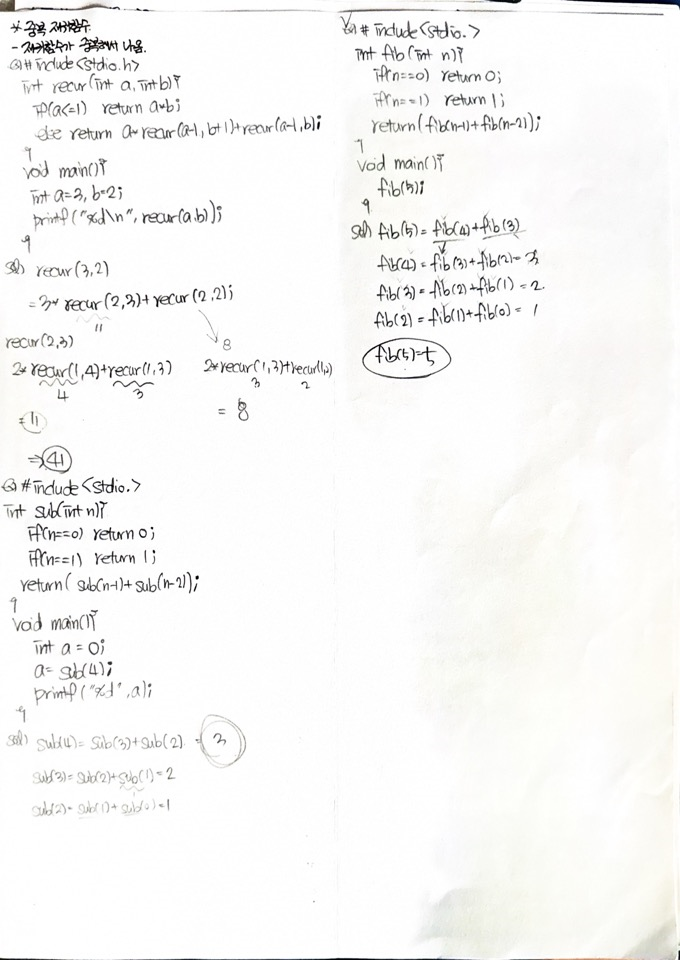 * 중복 재귀함수.
- 재귀함수가 중복해서 나옴.
Q) #include <stdio.h>
int recur(int a, int b){
if(a<=1) return a*b;
else return a*recur(a-1, b+1)+recur(a-1, b);
}
void main(){
int a=3, b=2;
printf("%d\n", recur(a,b));
}
sol) recur(3,2)
=3* recur(2,3)+recur(2,2);
11
8
recur(2,3)
2*recur(1,4)+recur(1,3)
4 3
=11
2*recur(1,3)+recur(1,2)
3 2
= 8
⇒ 41
Q) #include <stdio.>
int sub(int n){
if(n==0) return 0;
if(n==1) return 1;
return( sub(n-1)+sub(n-2));
}
void main(){
int a = 0;
a= sub(4);
printf("%d", a);
}
sol) sub(4)= sub(3)+sub(2). = 3
sub(3)= sub(2)+sub(1)=2
sub(2)= sub(1)+sub(0)=1
Q) # include <stdio.>
int fib(int n){
if(n==0) return 0;
if(n==1) return 1;
return(fib(n-1)+fib(n-2));
}
void main(){
fib(5);
}
sol) fib(5)=fib(4)+fib(3)
fib(4)=fib(3)+fib(2)=3
fib(3)=fib(2)+fib(1)=2.
fib(2)=fib(1)+fib(0)=1
fib(5)=5